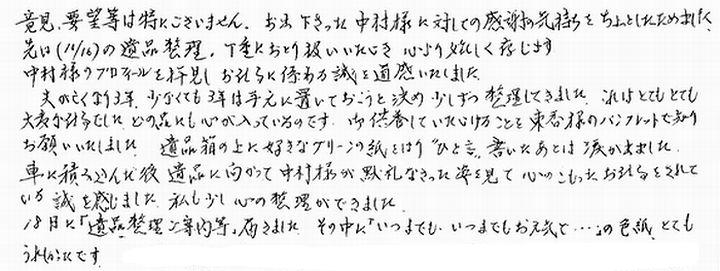 意見、要望等は特にございません。お出下さった中村様に対しての感謝の気持ちをちょっとしたためました。
先日(11/16)の遺品整理、丁重にお取り扱いいただき心より嬉しく存じます
中村様のプロフィールを拝見しお仕事に係わる誠を直感いたしました。
夫が亡くなり3年、少なくても3年は手元に置いておこうと決め少しずつ整理してきました。これはとてもとても
大変な仕事でした。どの品にも心が入っているのです。御供養していただけることを東香様のパンフレットで知り
お願いいたしました。遺品箱の上に好きなグリーンの紙をはり"ひと言"書いたあとは涙が出ました。
車に積み込んだ後遺品に向かって中村様が黙礼なさった姿を見て心のこもったお仕事をされて
いる誠を感じました。私も少し心の整理ができました。
18日に「遺品整理ご案内等」届きました。その中に「いつまでも、いつまでもお元気で…」の色紙、とても
うれしかったです